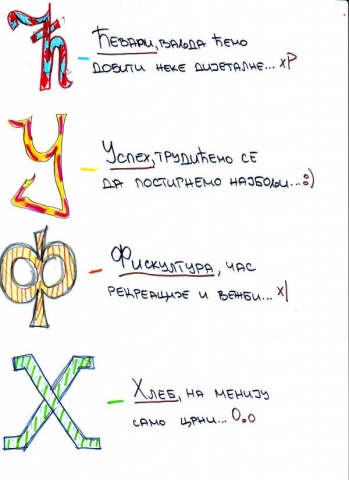 Ћ - Ћевапи, ваљда ћемо
добити неке дијеталне... xP
У - Успех, трудићемо се
да постигнемо најбољи... :)
Ф - Фискултура, час
рекреације и вежби... x|
Х - Хлеб, на менију
само црни... O.o